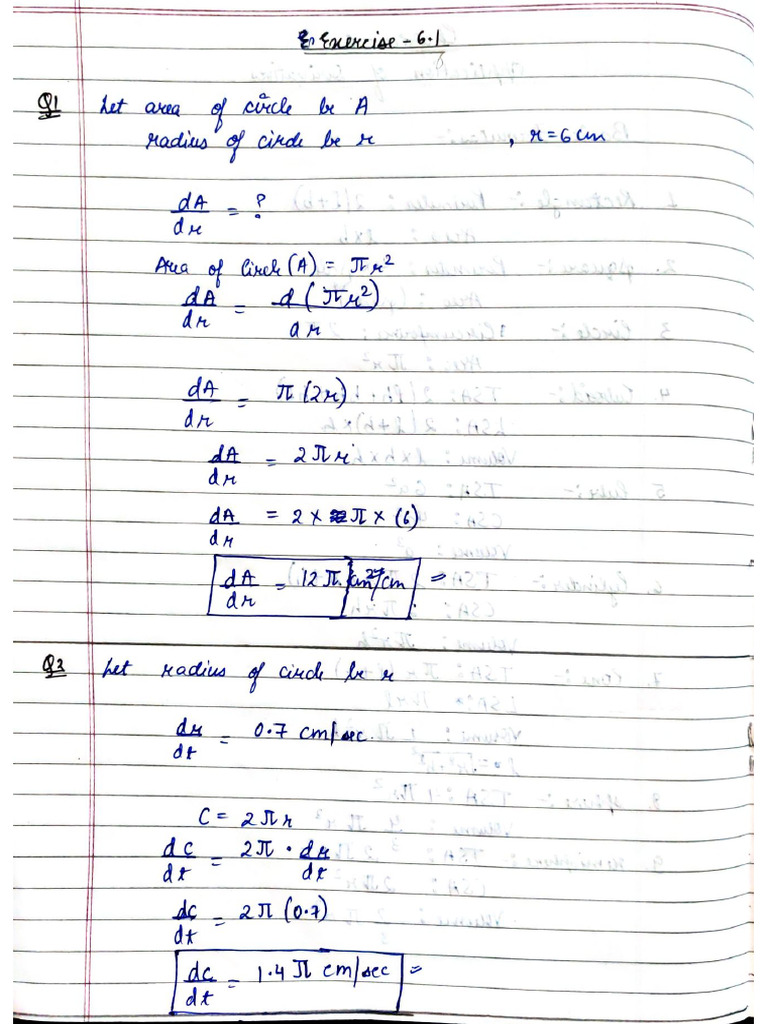 Exercise - 6.1
Q1 Let area of circle be A
radius of circle be r , r = 6 cm
dA/dr = ?
Area of Circle (A) = πr²
dA/dr = d(πr²)/dr
dA/dr = π(2r)
dA/dr = 2πr
dA/dr = 2 × π × (6)
dA/dr = 12π cm²/cm
Q2 Let radius of circle be r
dr/dt = 0.7 cm/sec.
C = 2πr
dC/dt = 2π · dr/dt
dC/dt = 2π (0.7)
dC/dt = 1.4π cm/sec